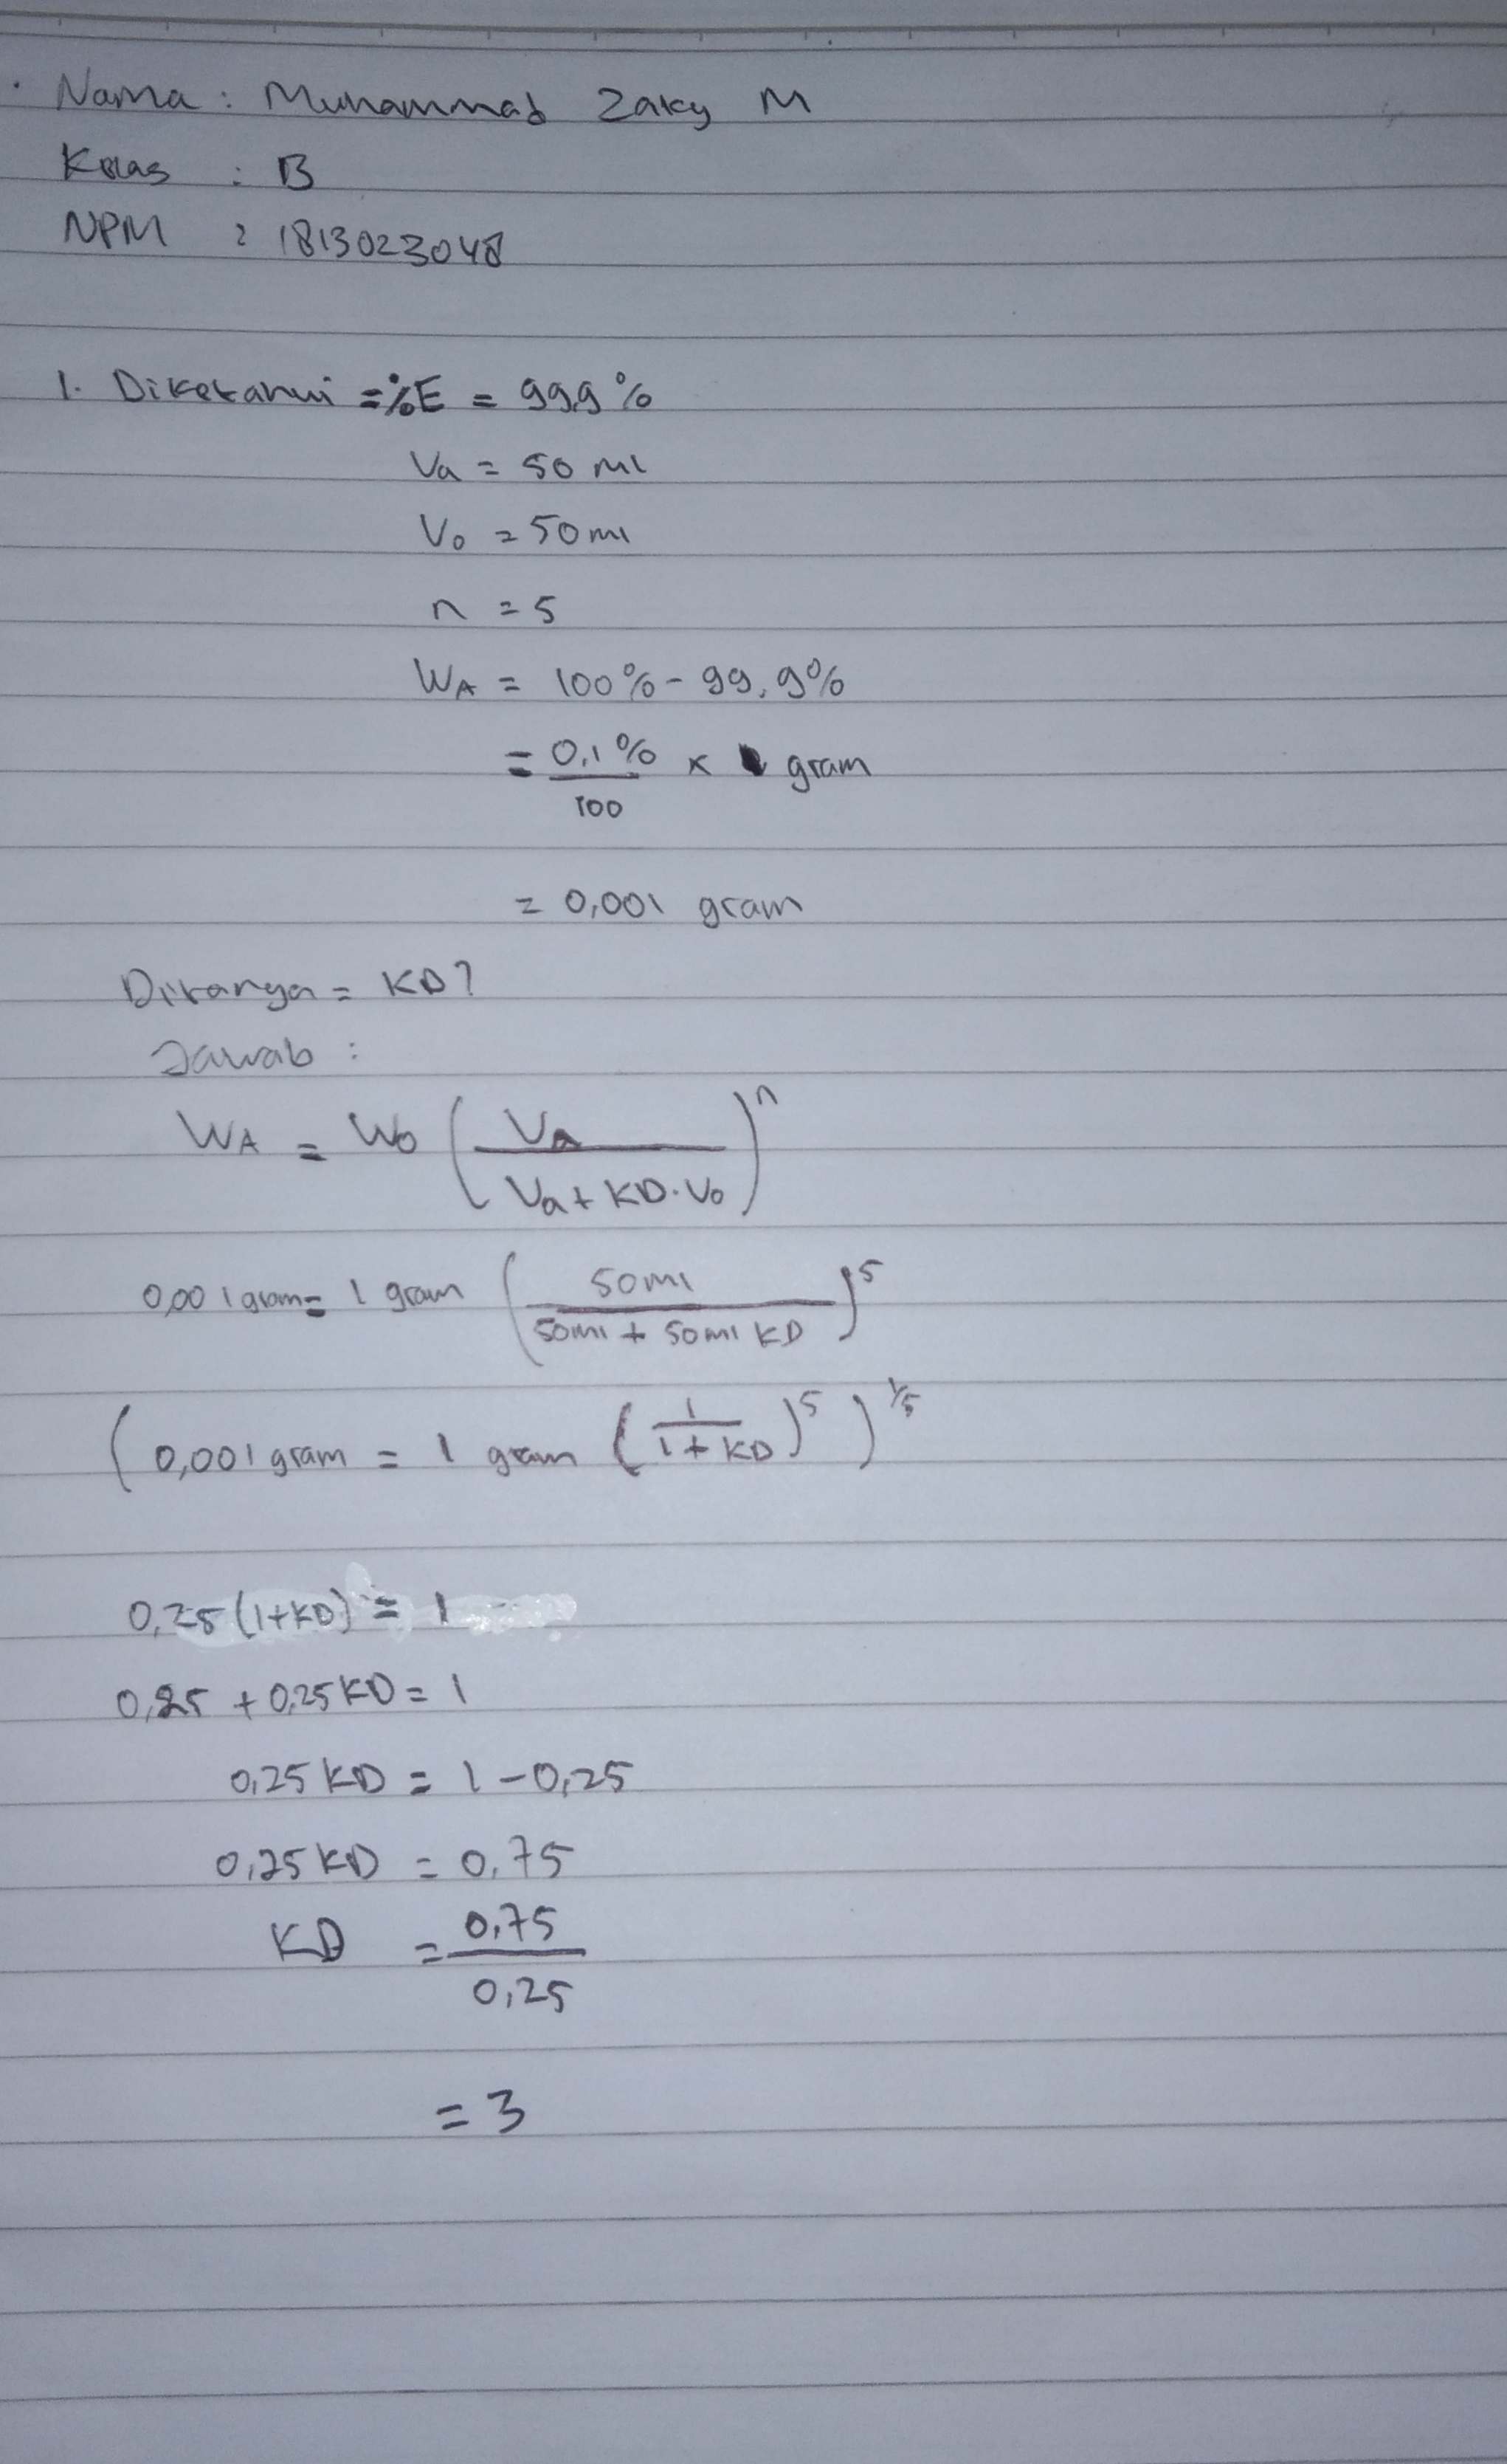 Nama : Muhammad Zaky M
Kelas : B
NPM : 1813023048
1. Diketahui = %E = 99,9 %
Va = 50 ml
Vo = 50 ml
n = 5
WA = 100% - 99,9%
= 0,1 % / 100 x gram
= 0,001 gram
Ditanya = KD?
Jawab :
WA = Wo ( Va / Va + KD . Vo )ⁿ
0,001 gram = 1 gram ( 50 ml / 50 ml + 50 ml KD )⁵
( 0,001 gram = 1 gram ( 1 / 1 + KD )⁵ )^1/5
0,25 (1+KD) = 1
0,25 + 0,25 KD = 1
0,25 KD = 1 - 0,25
0,25 KD = 0,75
KD = 0,75 / 0,25
= 3